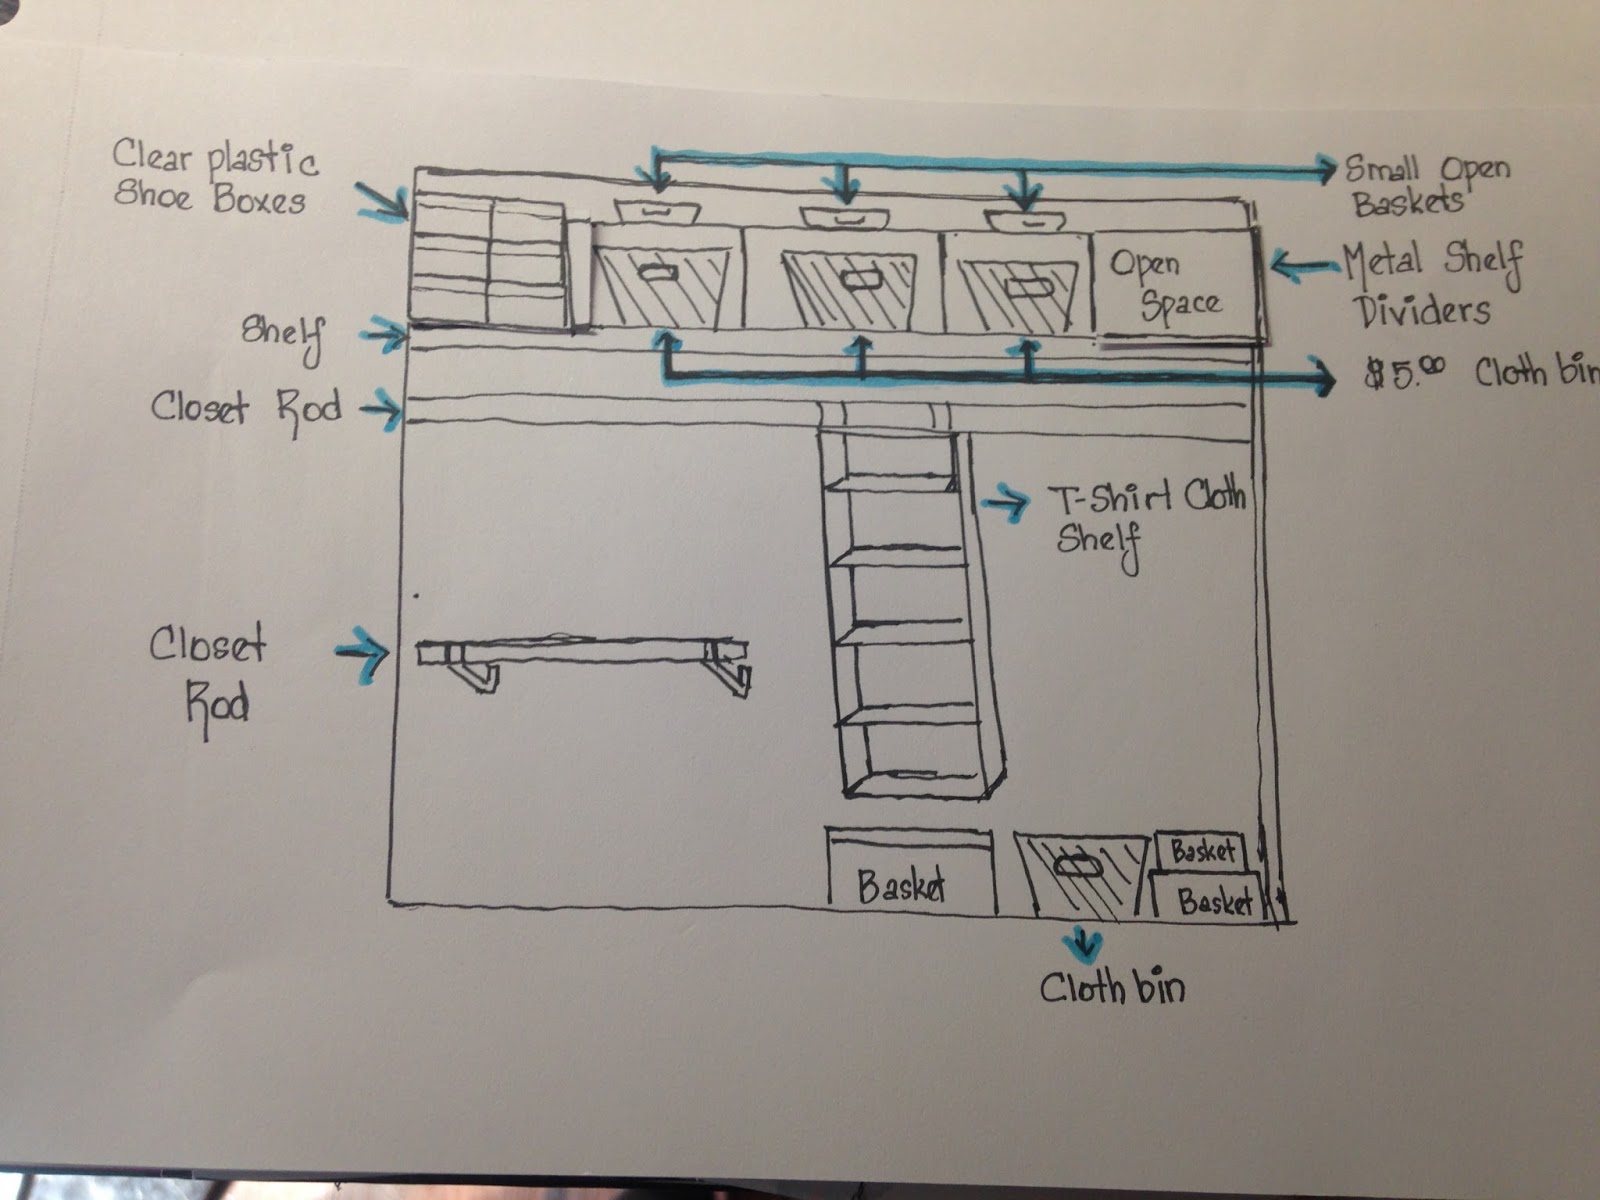 Clear plastic
Shoe Boxes
Small Open
Baskets
Open
Space
Metal Shelf
Dividers
Shelf
$5.00 Cloth bin
Closet Rod
T-Shirt Cloth
Shelf
Closet
Rod
Basket
Basket
Basket
Cloth bin